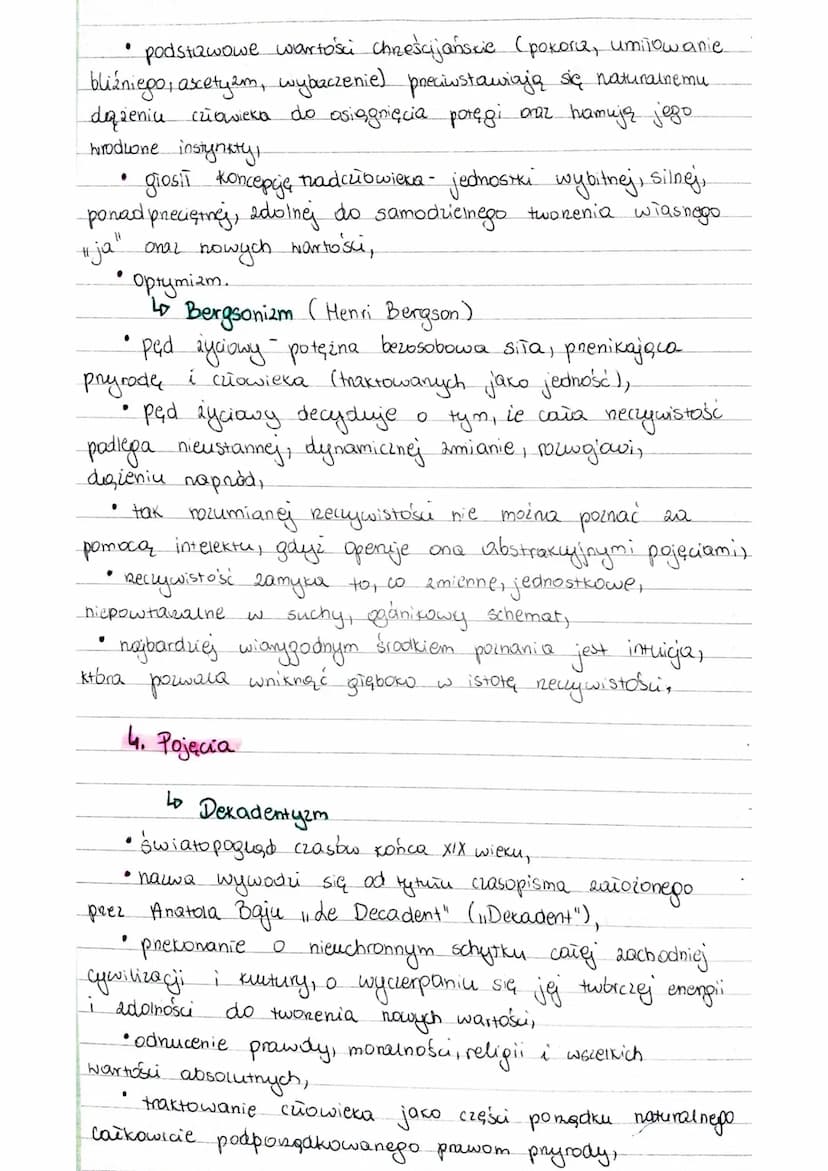 • podstawowe wartości chrześcijańskie (pokora, umiłowanie
bliźniego, ascetyzm, wybaczenie) przeciwstawiają się naturalnemu
dążeniu człowieka do osiągnięcia potęgi oraz hamują jego
wrodzone instynkty,
• głosił koncepcję nadczłowieka - jednostki wybitnej, silnej,
ponadprzeciętnej, zdolnej do samodzielnego tworzenia własnego
„ja" oraz nowych wartości,
• optymizm.
↳ Bergsonizm (Henri Bergson)
• pęd życiowy - potężna bezosobowa siła, przenikająca
przyrodę i człowieka (traktowanych jako jedność),
• pęd życiowy decyduje o tym, że cała rzeczywistość
podlega nieustannej, dynamicznej zmianie, rozwojowi,
dążeniu naprzód,
• tak rozumianej rzeczywistości nie można poznać za
pomocą intelektu, gdyż operuje ona abstrakcyjnymi pojęciami,
• rzeczywistość zamyka to, co zmienne, jednostkowe,
niepowtarzalne w suchy, ogólnikowy schemat,
• najbardziej wiarygodnym środkiem poznania jest intuicja,
która pozwala wniknąć głęboko w istotę rzeczywistości,
4. Pojęcia
↳ Dekadentyzm
• światopogląd czasów końca XIX wieku,
• nazwa wywodzi się od tytułu czasopisma założonego
przez Anatola Baju „de Decadent" („Dekadent"),
• przekonanie o nieuchronnym schyłku całej zachodniej
cywilizacji i kultury, o wyczerpaniu się jej twórczej energii
i zdolności do tworzenia nowych wartości,
• odrzucenie prawdy, moralności, religii i wszelkich
wartości absolutnych,
• traktowanie człowieka jako części porządku naturalnego
całkowicie podporządkowanego prawom przyrody,